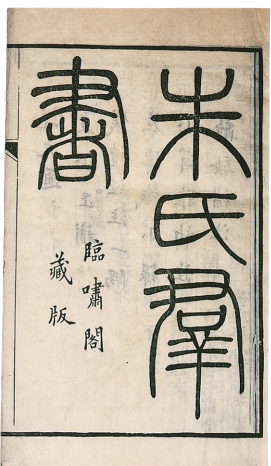 朱氏羣
書
臨嘯閣
藏版